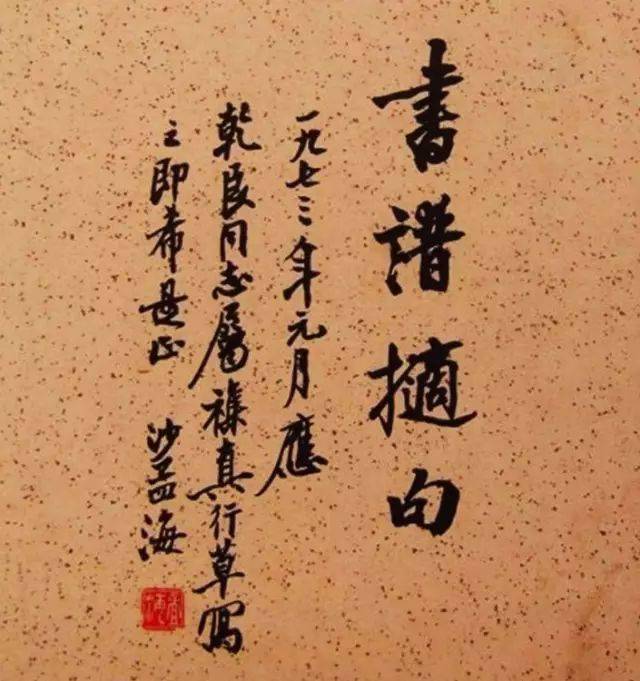 書譜摘句
一九七三年元月應
乾良同志屬雜真行草寫
之即希是正 沙孟海